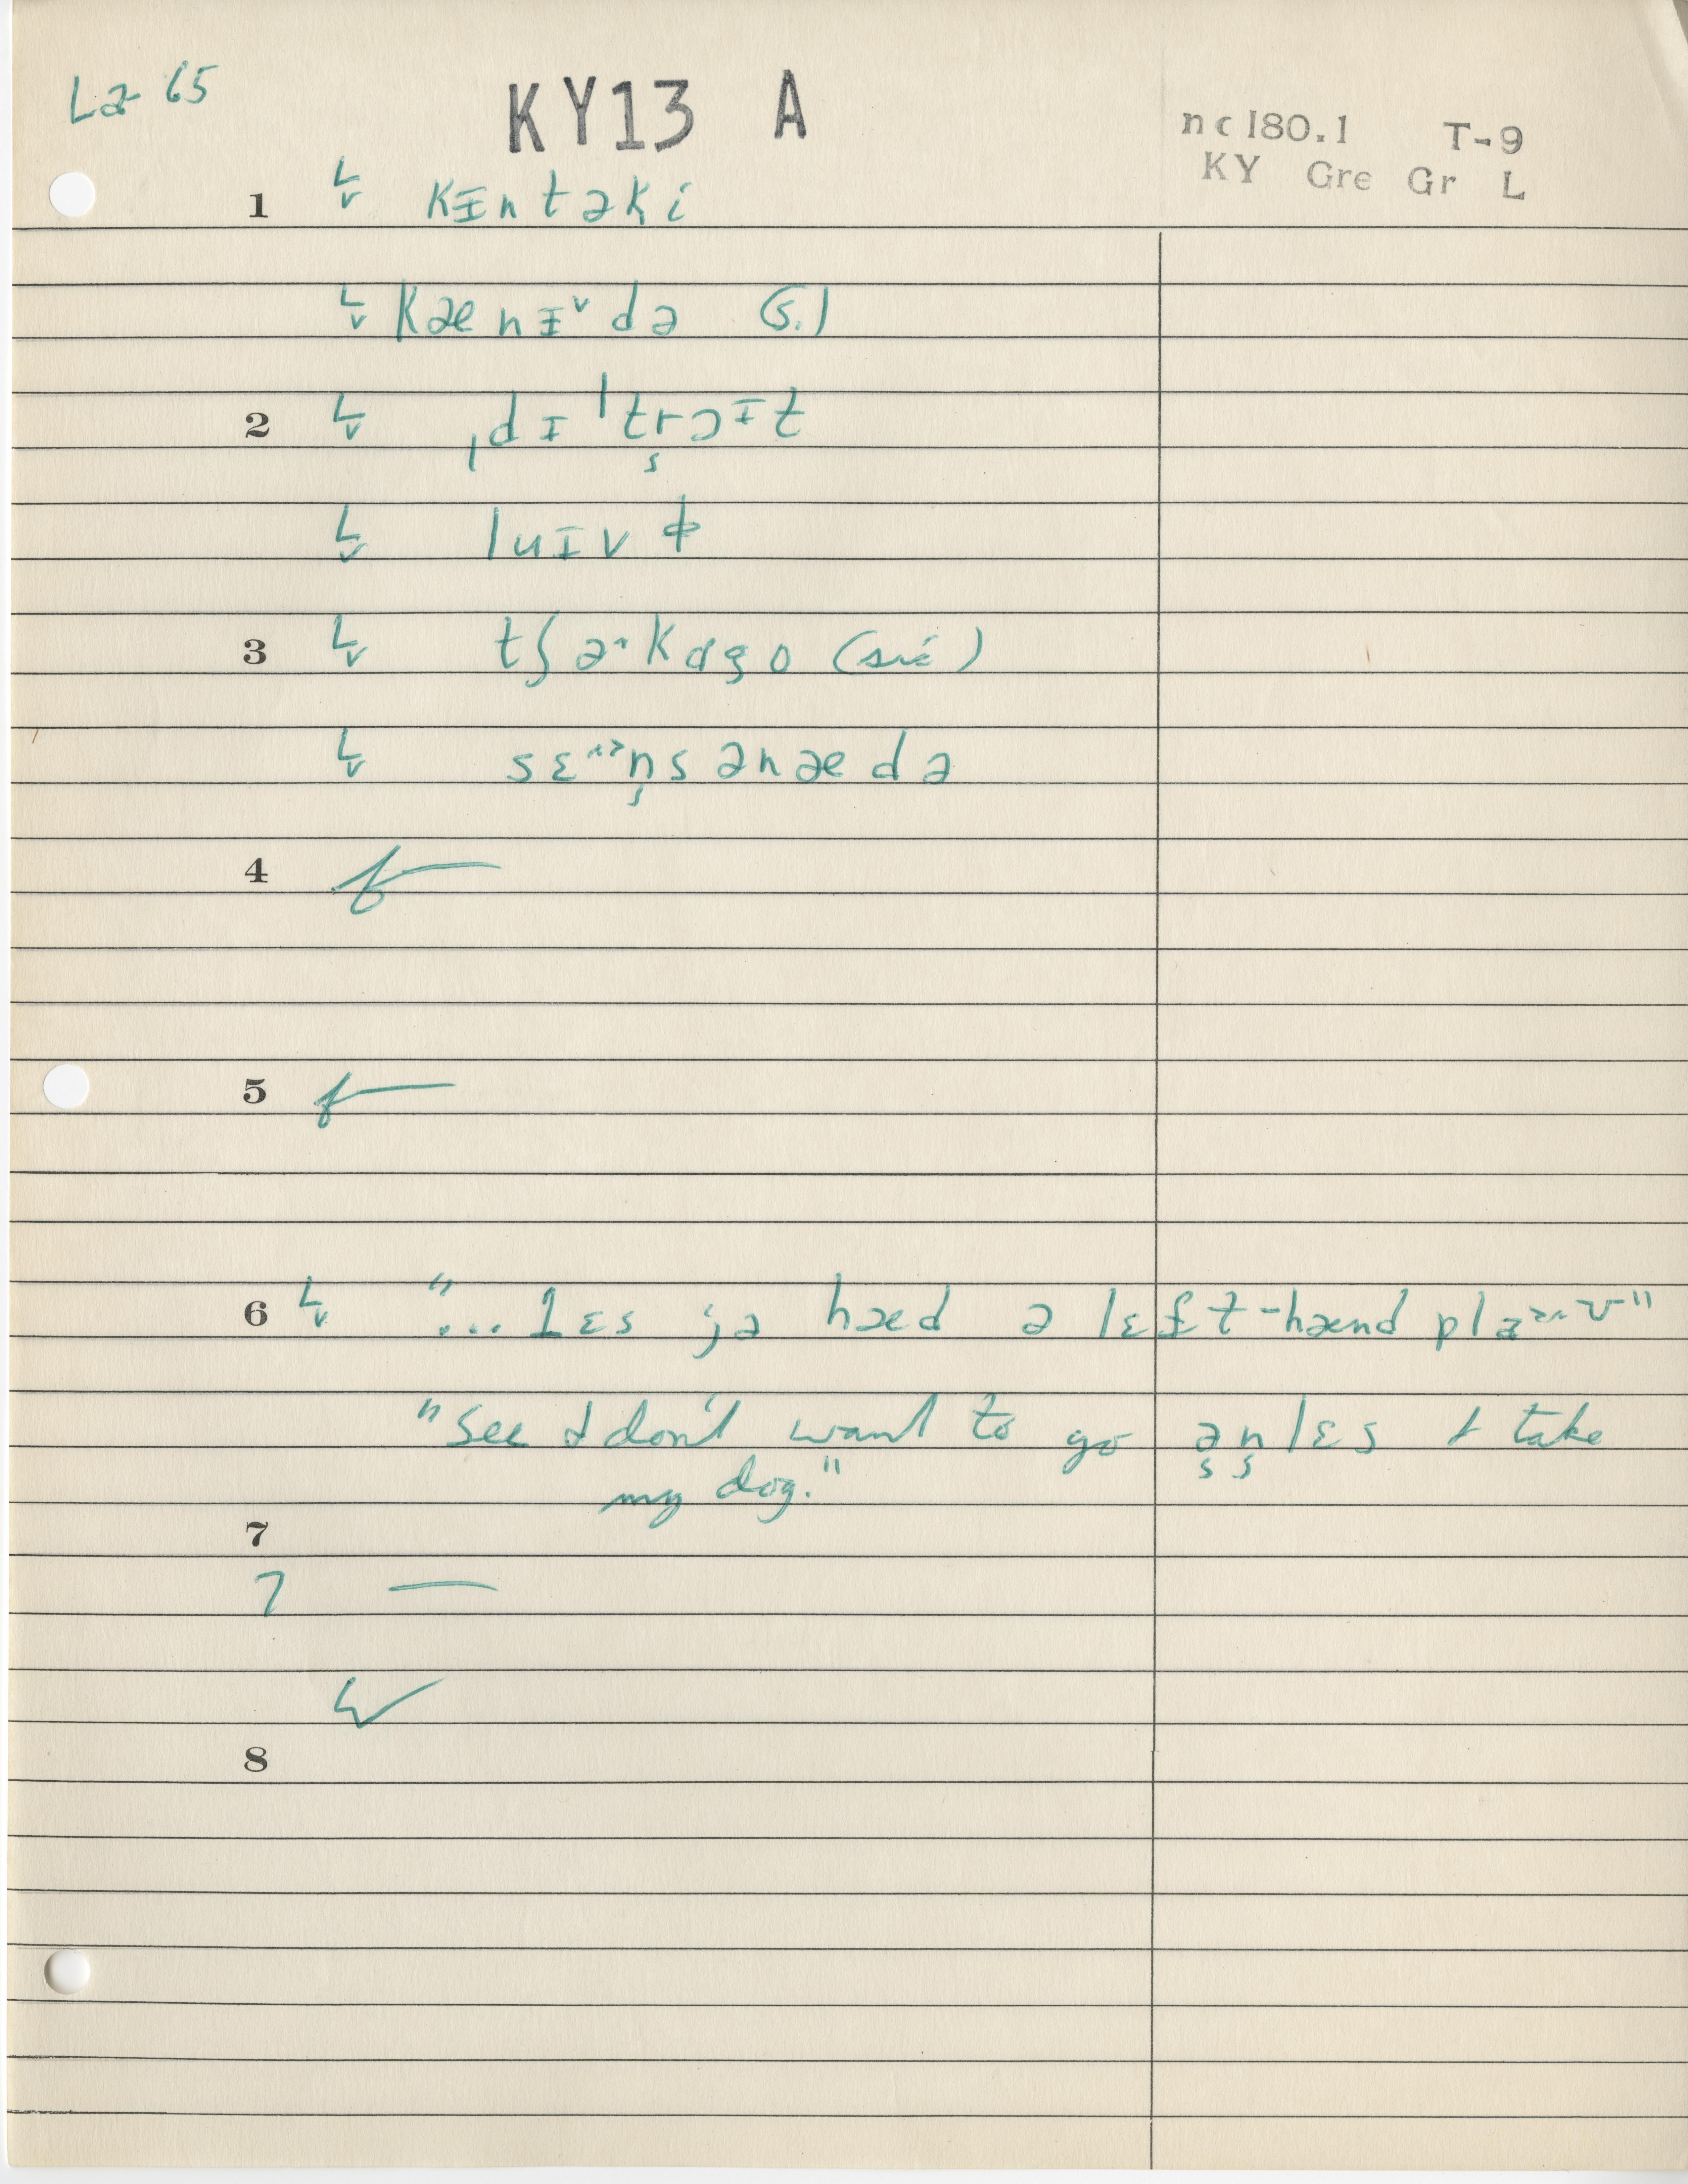 La 65
KY13 A
nc 180.1 T-9
KY Gre Gr L
1 kɪntəki
kænɪ˅də (s.)
2 ˌdɪˈtrɔɪt
luɪv
3 tʃəˑkɑgo (sic)
sɛnsənædə
4
5
6 "... lɛs jə hæd ə lɛft-hænd pl
"See I don't want to go ənlɛs I take
my dog."
7
7 —
8